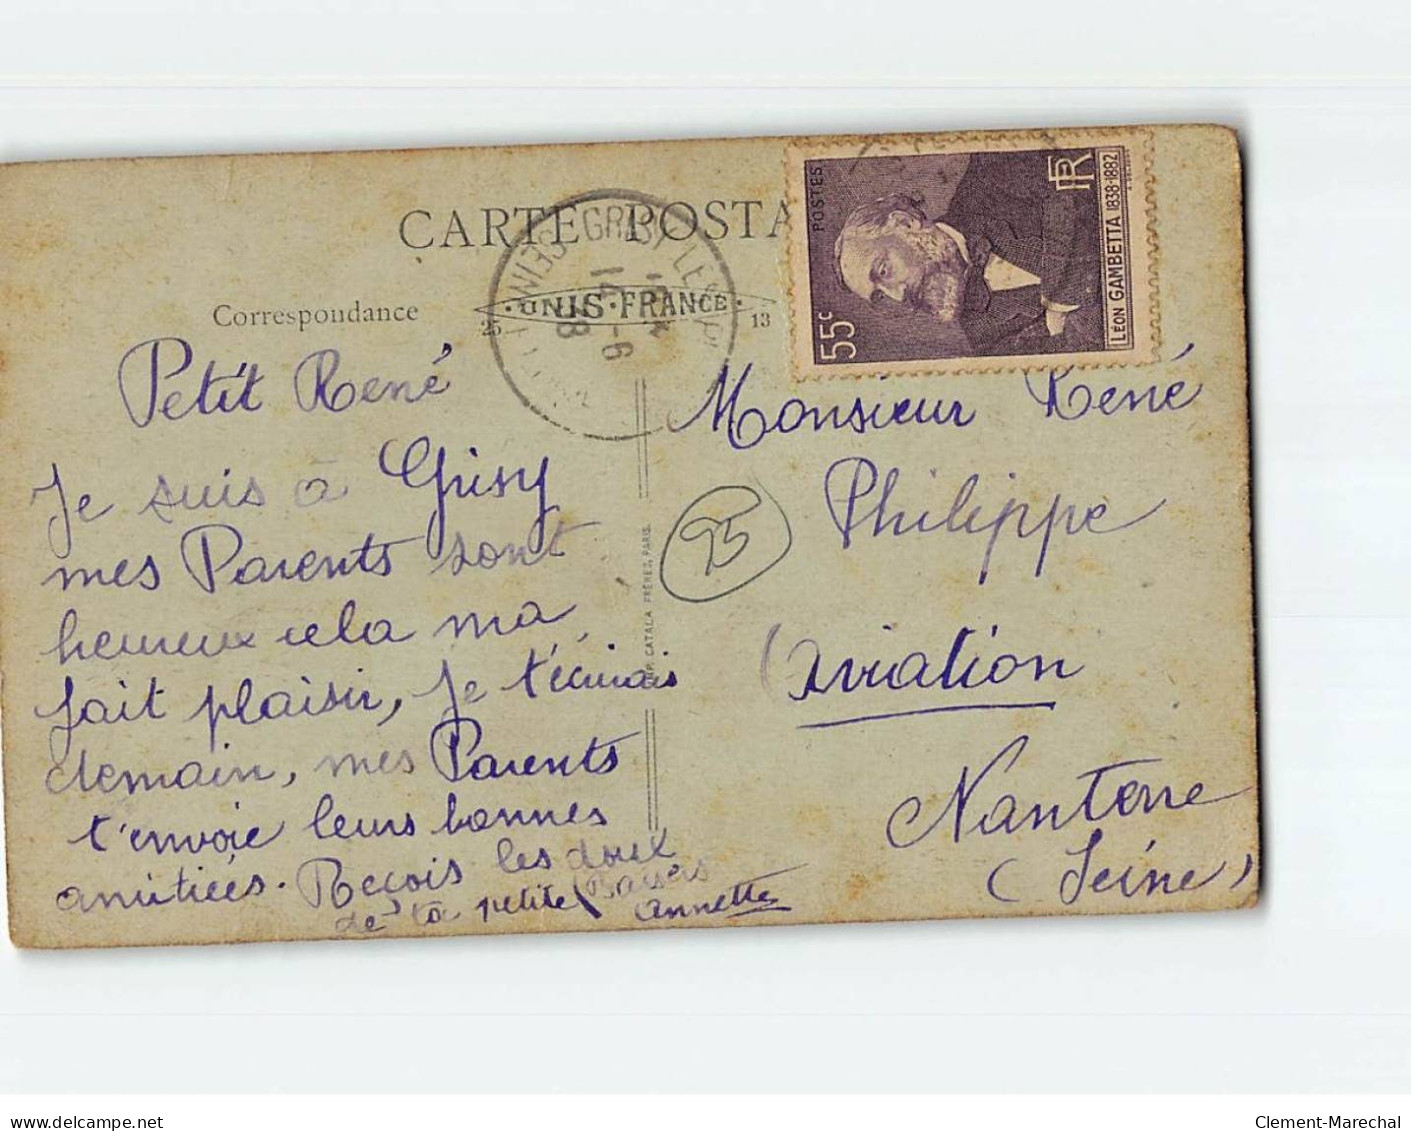 CARTE POSTA
Correspondance
25 · UNIS · FRANCE · 13
GRISY LES
14 -6
38
POSTES
55c
RF
LÉON GAMBETTA 1838-1882
Petit René
Je suis à Grisy
mes Parents sont
heureux cela ma
fait plaisir, Je t'écrirais
demain, mes Parents
t'envoie leurs bonnes
amitiées. Reçois les doux
Baisers
de ta petite
Annette
IMP. CATALA FRÈRES, PARIS.
95
Monsieur René
Philippe
Aviation
Nanterre
(Seine)
delcampe.net
Clement-Marechal